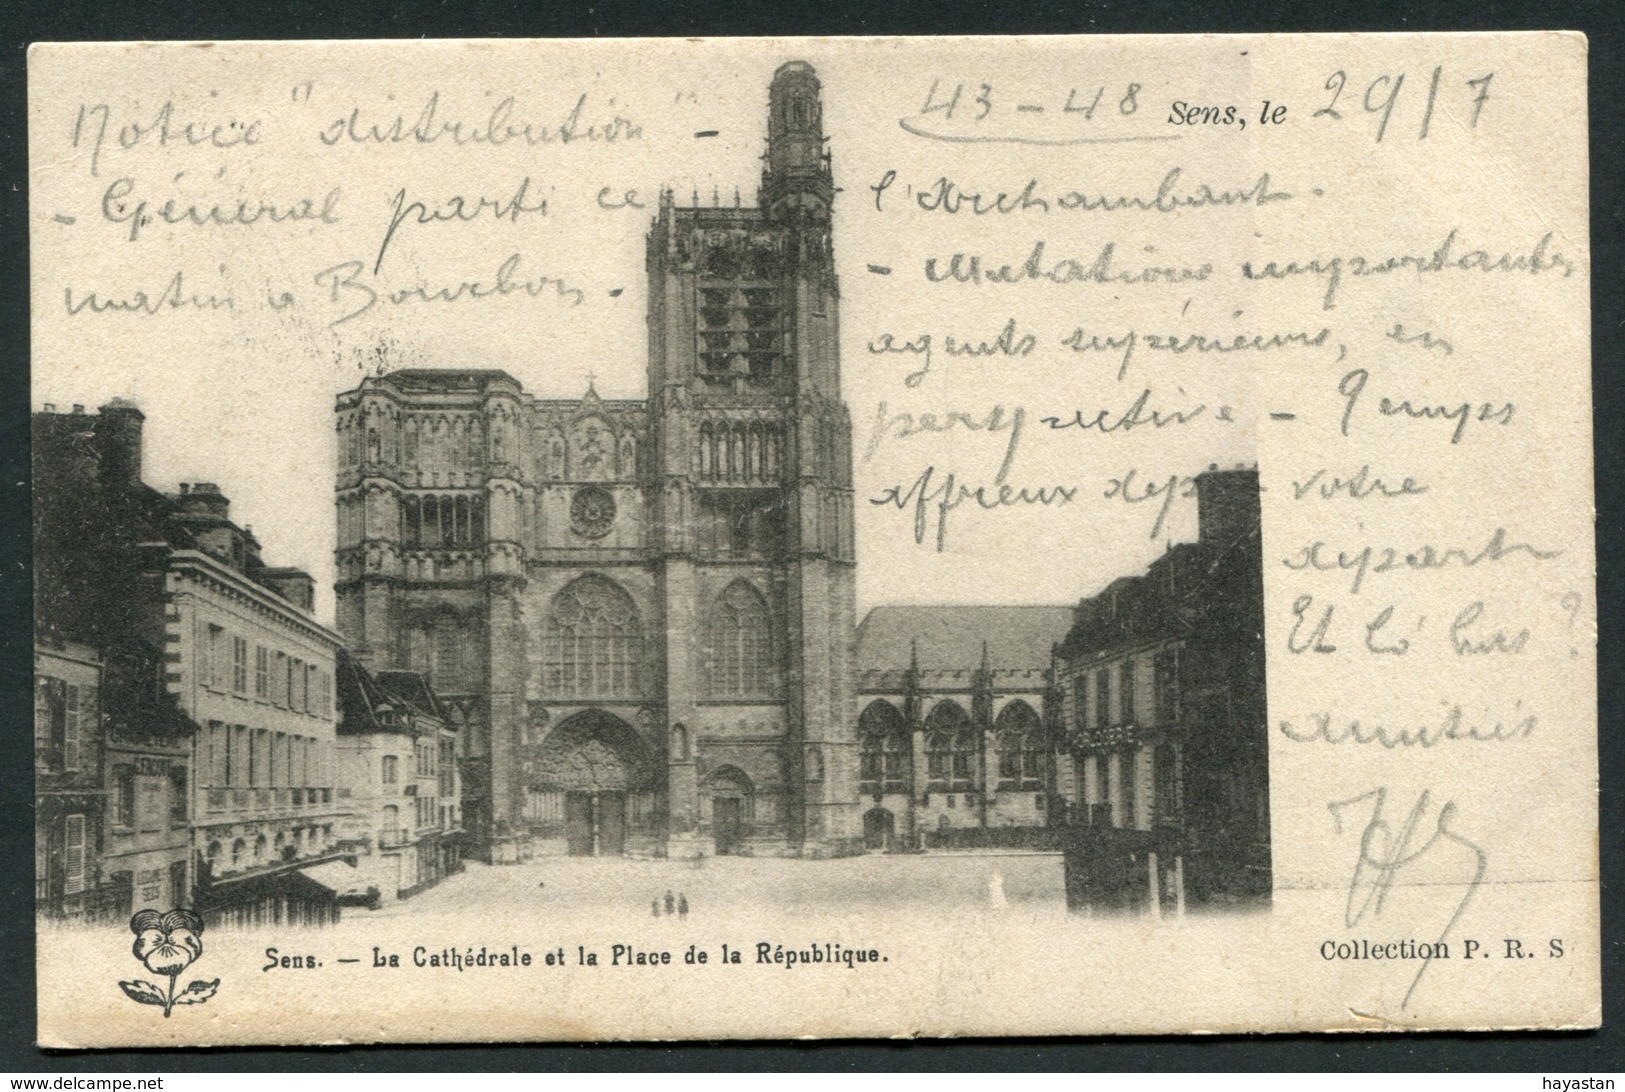 43 - 48 Sens, le 29/7
Notice "distribution" -
- Général parti ce
matin à Bourbon -
l'Archambault.
- Mutations importantes
agents supérieurs, en
perspective - Temps
affreux dep. votre
départ
Et là bas ?
amitiés
Sens. — La Cathédrale et la Place de la République.
Collection P. R. S
hayastan